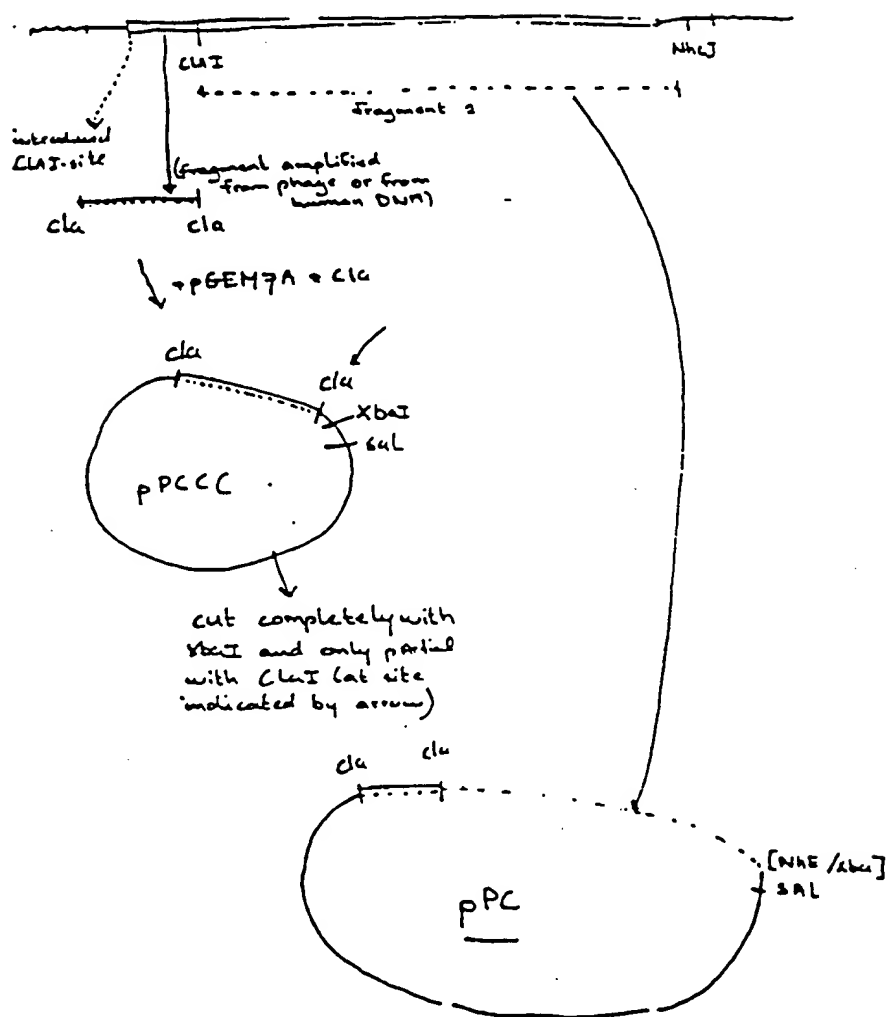 ClaI
NheI
fragment 2
introduced
ClaI-site
(fragment amplified
from phage or from
human DNA)
Cla
Cla
+pGEM7A * Cla
Cla
Cla
XbaI
SaL
pPCCC
cut completely with
XbaI and only partial
with ClaI (at site
indicated by arrow)
Cla
Cla
[NhE/Xba]
SAL
pPC